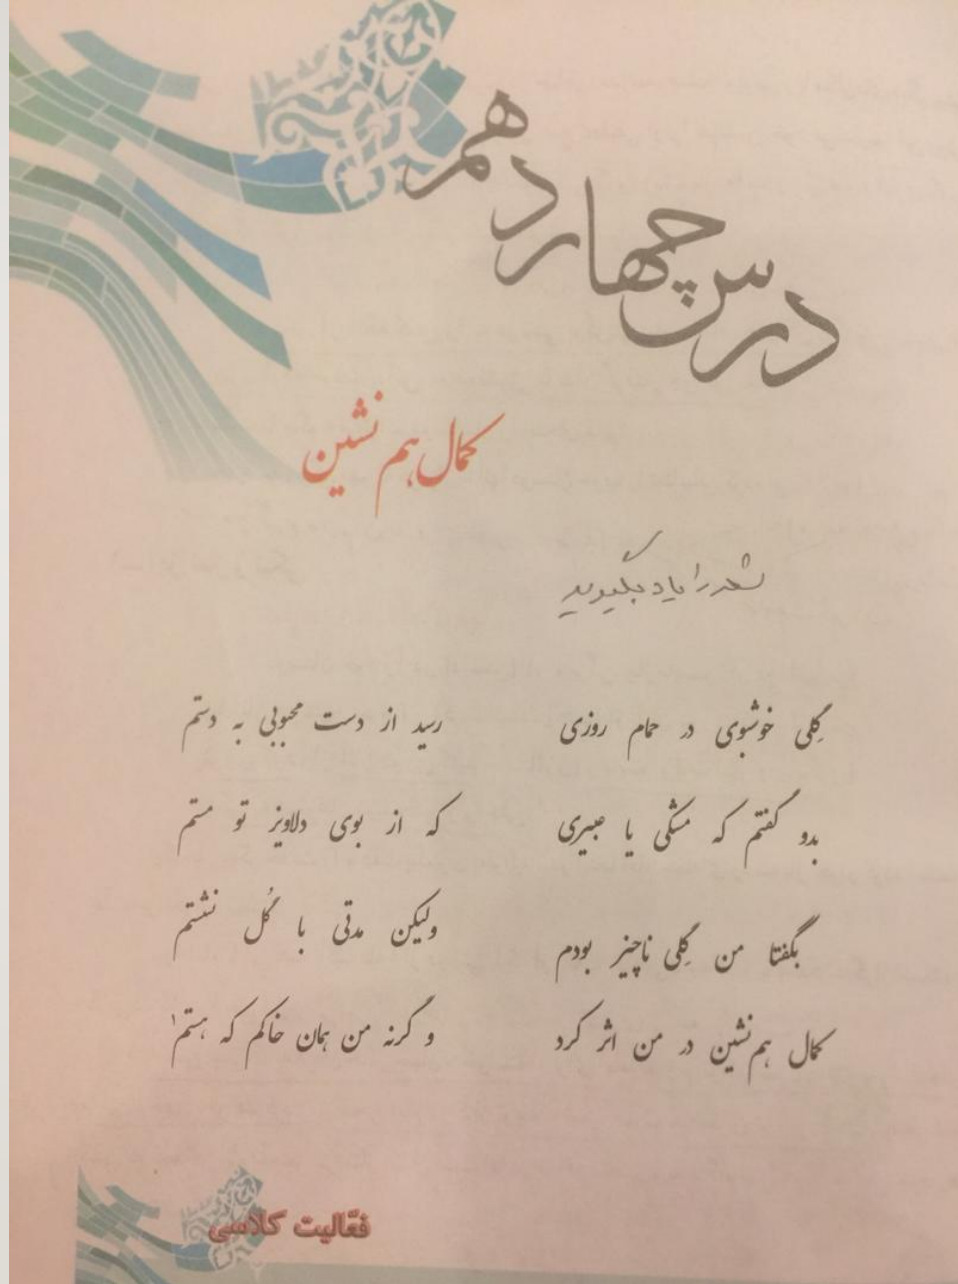 درس چهاردهم
کمال هم نشین
شعر را یاد بگیرید
گِلی خوشبوی در حمام روزی رسید از دست محبوبی به دستم
بدو گفتم که مشکی یا عبیری که از بوی دلاویز تو مستم
بگفتا من گِلی ناچیز بودم ولیکن مدتی با گُل نشستم
کمال هم نشین در من اثر کرد و گرنه من همان خاکم که هستم۱
فعّالیت کلاسی